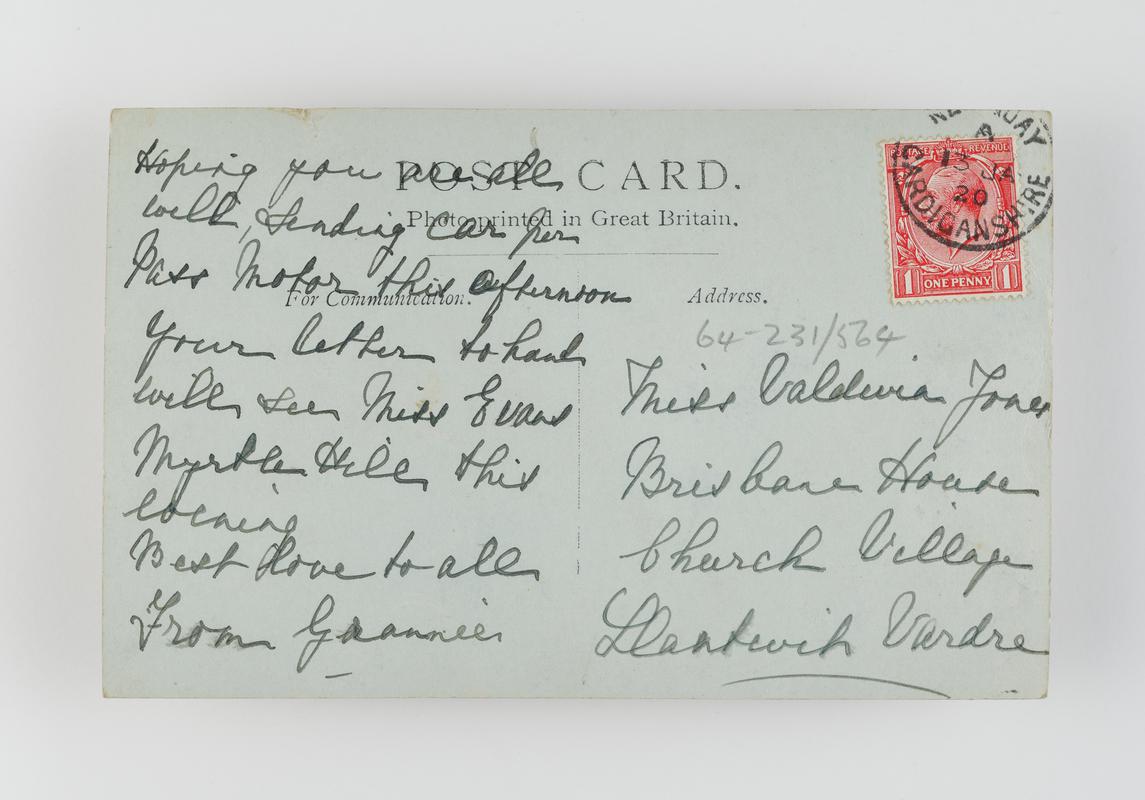 POST CARD.
Photo-printed in Great Britain.
For Communication.
Address.
Hoping you are all
well, Sending Car per
Pass Motor this afternoon
Your letter to hand
will see Miss Evans
Myrtle Hill this
Evening
Best Love to all
From Grannie
POSTAGE REVENUE
1 ONE PENNY 1
NEW QUAY
13 JA
20
CARDIGANSHIRE
64-231/564
Miss Valdwin Jones
Brisbane House
Church Village
Llantwit Vardre